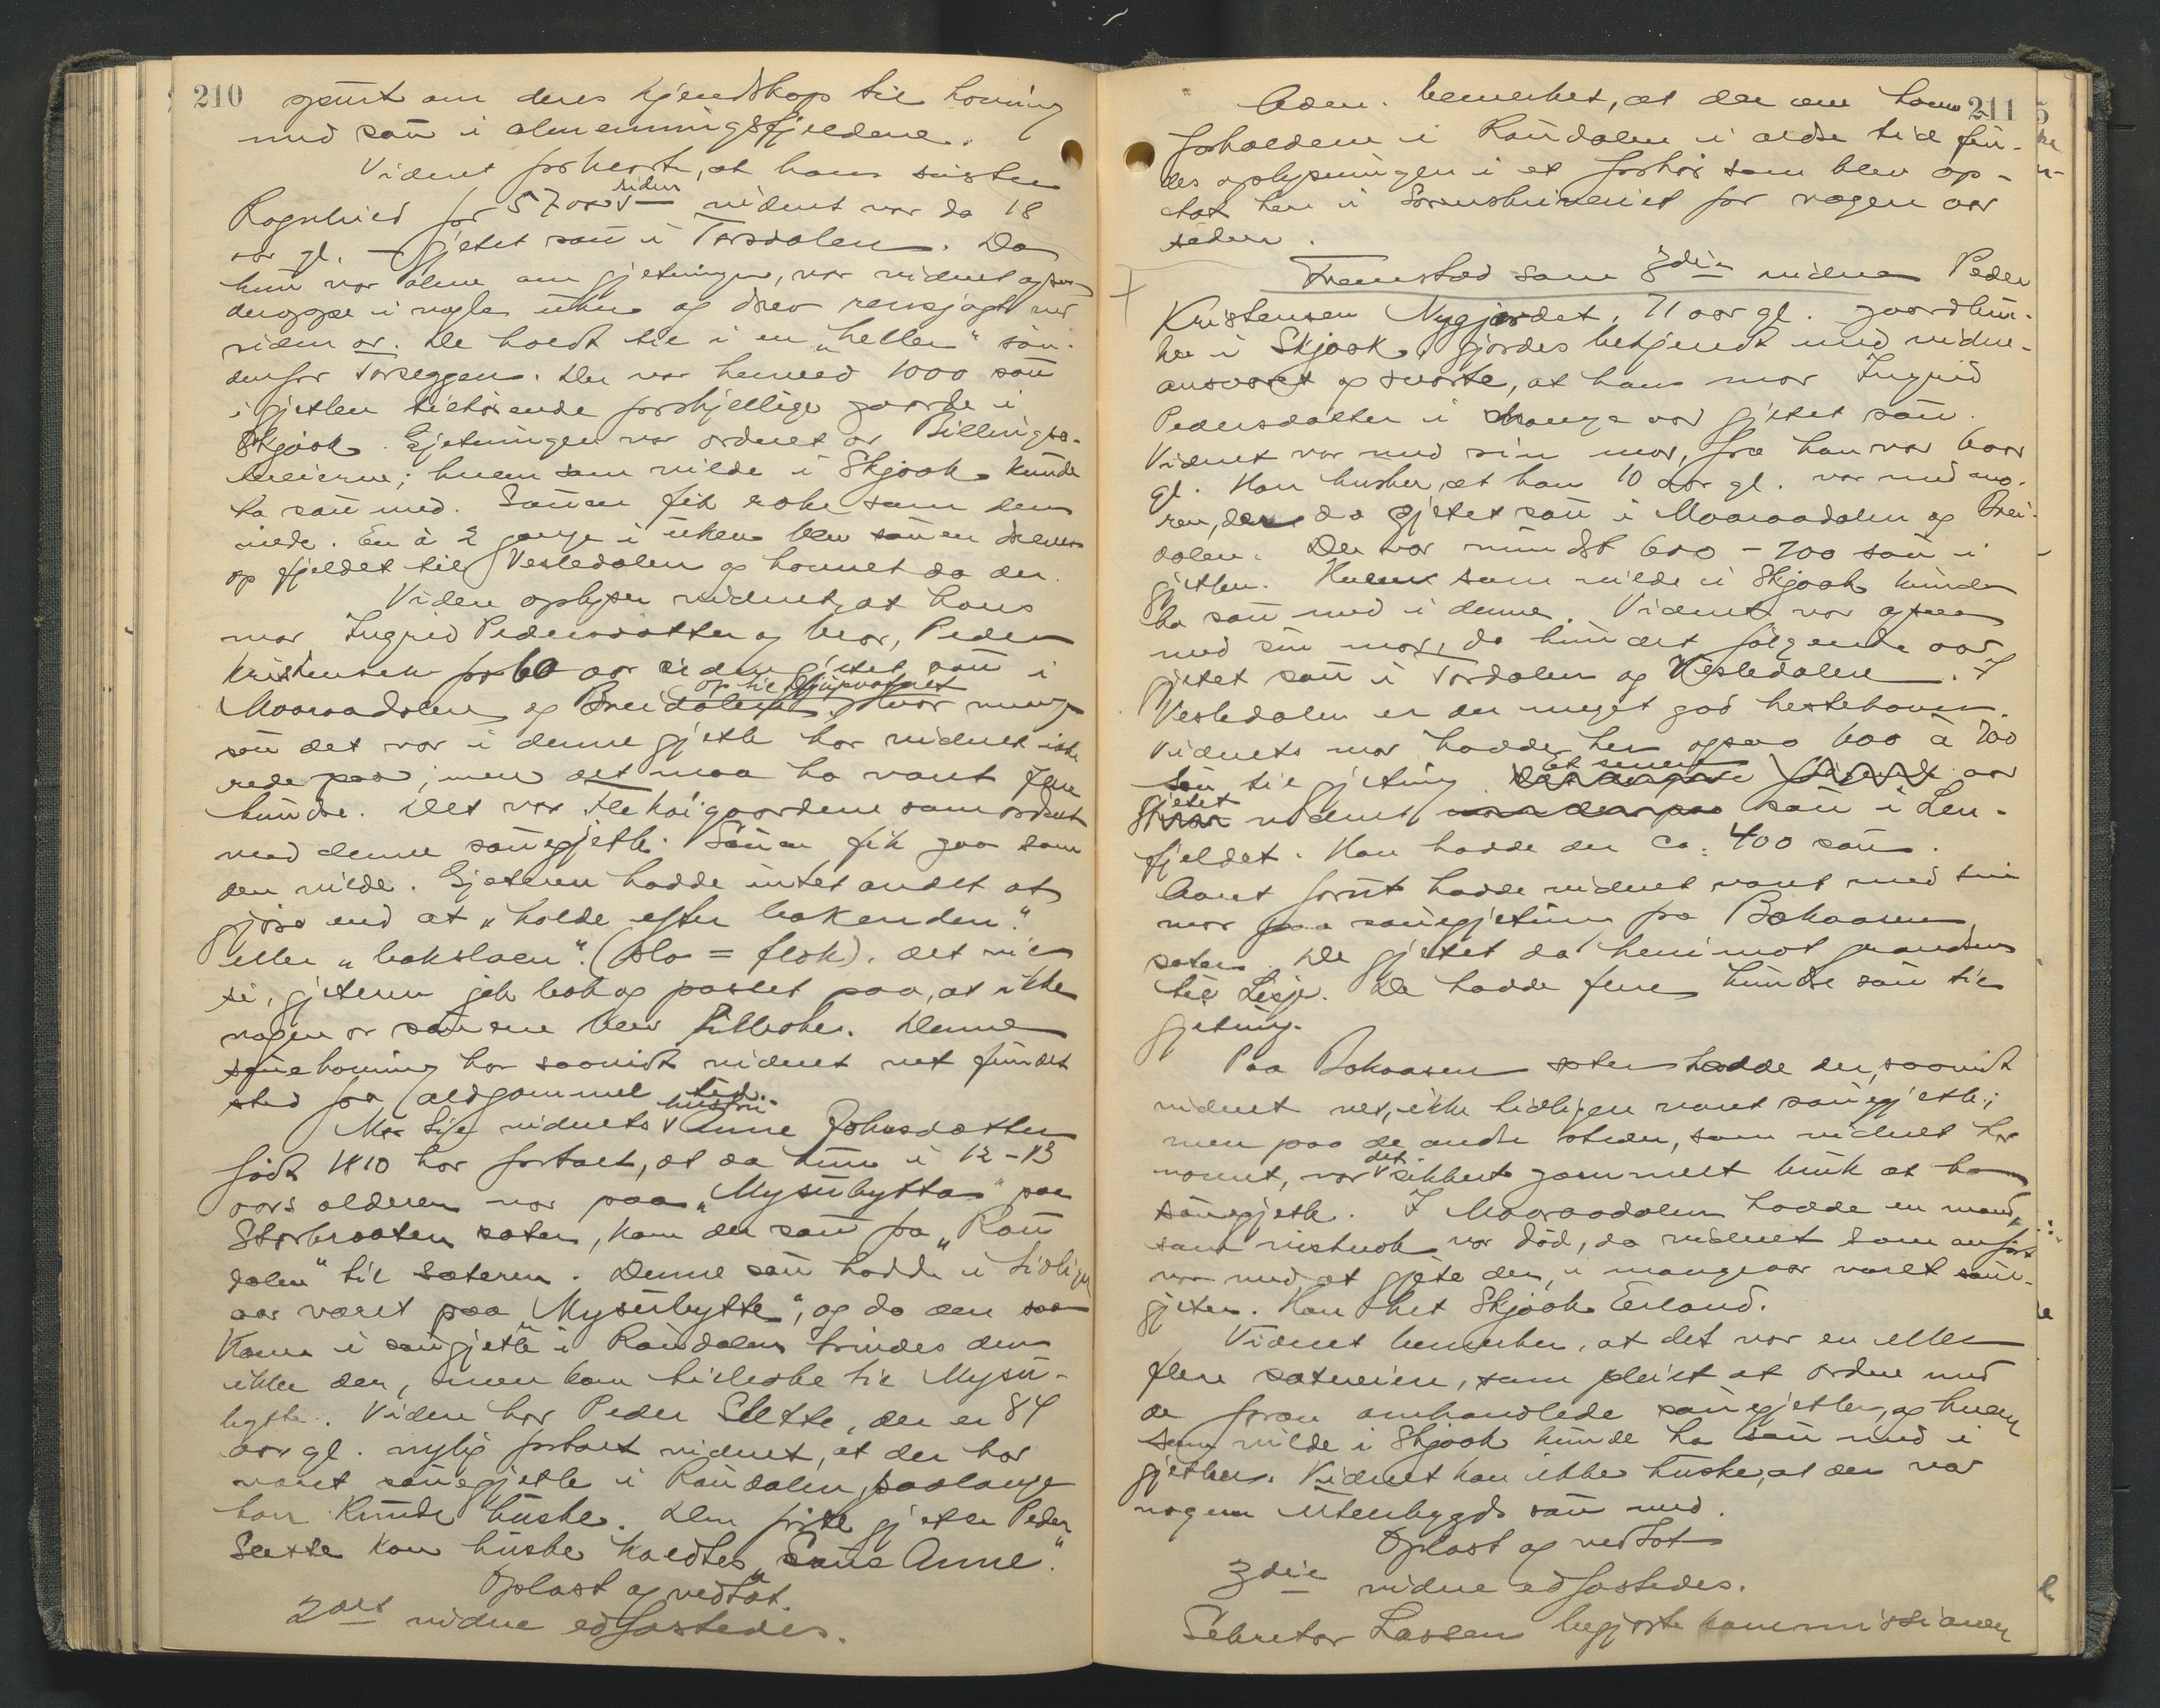 210
spurt om deres kjendskap til havning
med sau i almenningsfjeldene.
Vidnet forklarte, at hans søster
Ragnhild for 57 aar siden vidnet var da 18
aar gl. gjetet sau i Torsdalen. Da
hun var alene om gjetningen, var vidnet ogsaa
deroppe i nogle uker og drev rensjagt ved
siden av. De holdt til i en "heller" søn-
denfor Torseggen. Der var henved 1000 sau
i gjetlen tilhørende forskjellige gaarde i
Skjaak. Gjetningen var ordnet av Billingsæ-
tereierne; hvem som vilde i Skjaak kunde
ha sau med. Sauen fik røke som den
vilde. En à 2 gange i uken blev sauen drevet
op fjeldet til Vesledalen og havnet da der.
Videre oplyser vidnet, at hans
mor Ingrid Pedersdatter og bror, Peder
Kristensen for 60 aar siden gjetet sau i
op til Djupvatnet
Maaraadalen og Breidalen. Hvor mange
sau det var i denne gjetle har vidnet ikke
rede paa; men det maa ha vært flere
hundre. Det var Hekøigaardene som ordnet
med denne sauegjetle. Sauen fik gaa som
den vilde. Gjeteren hadde intet andet at
gjøre end at "holde efter bakenden"
eller "bakslaen". (sla = flok). det vil
si, gjeteren gik bak og passet paa, at ikke
nogen av sauene blev tilbake. Denne
sauehavning har saavidt vidnet vet fundet
sted fra aldgammel tid.
hustru
Mor til vidnets Anne Johnsdatter
født 1810 har fortalt, at da hun i 12-13
aars alderen var paa "Mysubytta" paa
Storbraaten sæter, kom der sau fra "Rau
dalen" til sæteren. Denne sau hadde i tidligere
aar været paa "Mysubytte", og da den saa
kom i saugjetle i Raudalen trivdes den
ikke der, men kom tilbake til Mysu-
bytte. Videre har Peder Slette, der er 84
aar gl. nylig fortalt vidnet, at der har
været sauegjetle i Raudalen, saalænge
han kunde huske. Den første gjeter Peder
Slette kan huske kaldtes "Saue Anne".
Oplæst og vedtat.
2det vidne edfæstedes.
211
Adm. bemerket, at der om havne
forholdene i Raudalen i ældre tid fin-
des oplysninger i et forhør som blev op-
tat her i Sorenskriveriet for nogen aar
siden.
Fremstod som 3die vidne Peder
Kristensen Nygjørdet, 71 aar gl. gaardbru-
ker i Skjaak, gjordes bekjendt med vidne-
ansvaret og svarte, at hans mor Ingrid
Pedersdatter i mange aar gjetet sau.
Vidnet var med sin mor, fra han var 6 aar
gl. Han husker, at han 10 aar gl. var med mo-
ren, da gjetet sau i Maaraadalen og Brei-
dalen. Der var mindst 600 - 700 sau i
gjetlen. Hvem som vilde i Skjaak kunde
ha sau med i denne. Vidnet var ogsaa
med sin mor, da hun det følgende aar
gjetet sau i Tordalen og Vesledalen. I
Vesledalen er der meget god hestehavn.
Vidnets mor hadde her ogsaa 600 à 700
sau til gjeting. Et senere aar
gjetet vidnet sau i Len-
fjeldet. Han hadde der ca: 400 sau.
Aaret forut hadde vidnet vært med sin
mor paa sauegjeting fra Bakaasen
sæter. De gjetet da henimot grænsen
til Lesje. De hadde flere hundre sau til
gjetning.
Paa Bakaasen sæter hadde der, saavidt
vidnet vet, ikke tidligere været sauegjetle;
men paa de andre steder, som vidnet har
nævnt, var det sikkert gammelt bruk at ha
sauegjetle. I Maaraadalen hadde en mand,
som nestnok var død, da vidnet som anført
var med at gjete der, i mange aar været saue-
gjeter. Han het Skjaak Erland.
Vidnet bemerker, at det var en eller
flere sætereiere, som pleiet at ordne med
de foran omhandlede sauegjetler, og hvem
som vilde i Skjaak kunde ha sau med i
gjetlen. Vidnet kan ikke huske, at der var
nogen utenbygds sau med.
Oplæst og vedtat
3die vidne edfæstedes.
Sekretær Lassen begjærte kommissionen